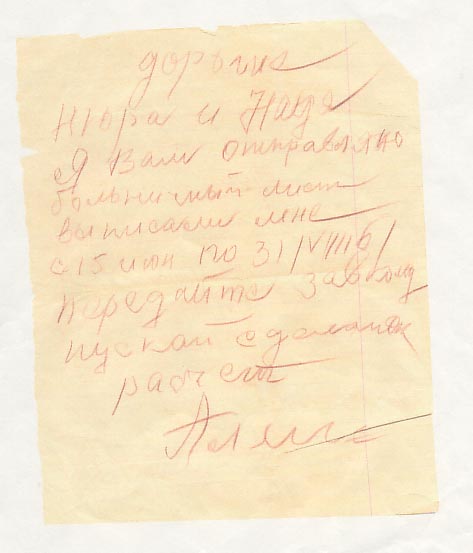 дорогие
Нюра и Надя
я Вам отправляю
больничный лист
выписали мне
с 15 июн по 31/VIII
передайте завкому
пускай сделают
расчет